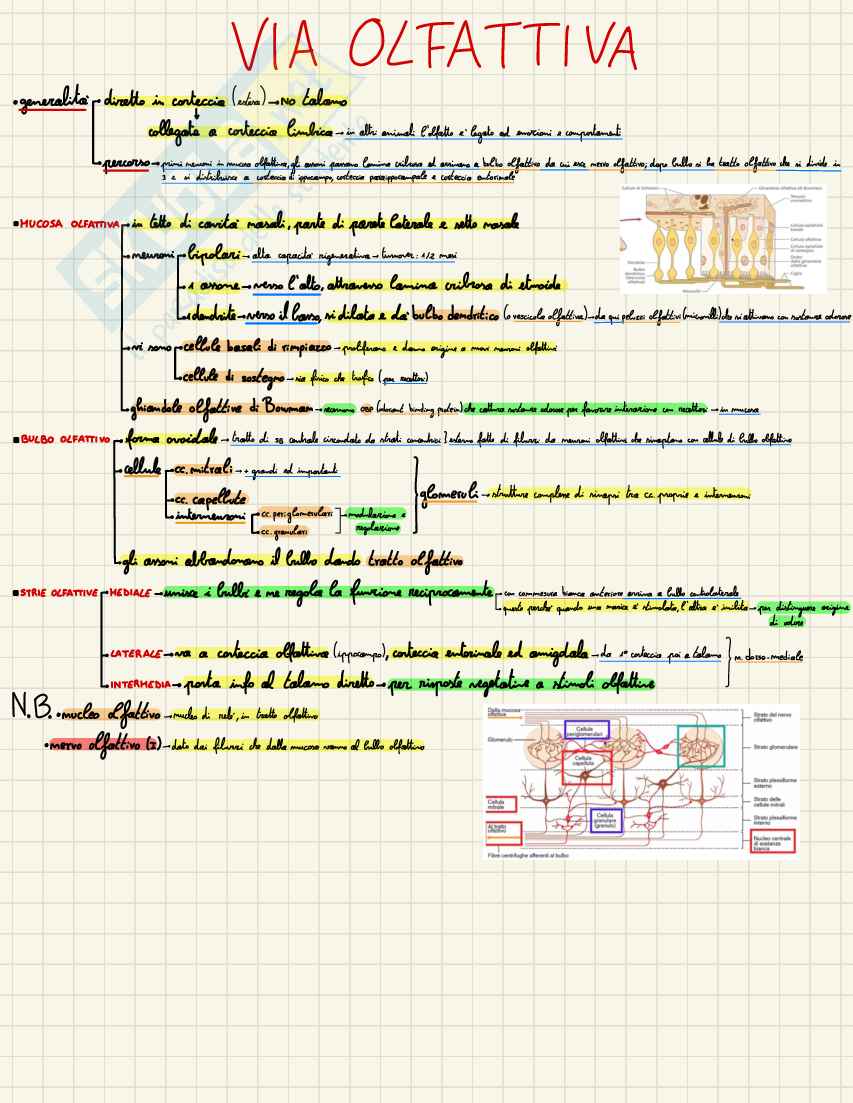 VIA OLFATTIVA
• generalità
diretto in corteccia (estesa) → NO talamo
collegata a corteccia limbica → in altri animali l'olfatto è legato ad emozioni e comportamenti
percorso → primi neuroni in mucosa olfattiva, gli assoni passano lamina cribrosa ed arrivano a bulbo olfattivo da cui esce nervo olfattivo; dopo bulbo si ha tratto olfattivo che si divide in
3 e si distribuisce a corteccia d'ippocampo, corteccia paraippocampale e corteccia entorinale
▪ MUCOSA OLFATTIVA
in tetto di cavità nasali, parte di parete laterale e setto nasale
neuroni
bipolari → alta capacità rigenerativa → turnover: 1/2 mesi
1 assone → verso l'alto, attraverso lamina cribrosa di etmoide
1 dendrite → verso il basso, si dilata e dà bulbo dendritico (o vescicola olfattiva) → da qui peluzzi olfattivi (microvilli) che si attivano con sostanze odorose
vi sono
cellule basali di rimpiazzo → proliferano e danno origine a nuovi neuroni olfattivi
cellule di sostegno → sia fisico che trofico (per recettori)
ghiandole olfattive di Bowman → secernono OBP (odorant binding protein) che cattura sostanze odorose per favorire interazione con recettori → in mucosa
Cellula di Schwann
Ghiandola olfattiva di Bowman
Tessuto connettivo
Cellula epiteliale basale
Cellula olfattiva
Cellula epiteliale di sostegno
Dotto della ghiandola olfattiva
Ciglia
Dendrite
Bulbo dendritico (vescicola olfattiva)
Microvilli
▪ BULBO OLFATTIVO
forma ovoidale → tratto di SB centrale circondato da strati concentrici } esterno fatto di filuzzi da neuroni olfattivi che sinaptano con cellule di bulbo olfattivo
cellule
cc. mitrali → + grandi ed importanti
cc. capellute
interneuroni
cc. periglomerulari
cc. granulari
modulazione e regolazione
glomeruli → strutture complesse di sinapsi tra cc. proprie e interneuroni
gli assoni abbandonano il bulbo dando tratto olfattivo
▪ STRIE OLFATTIVE
MEDIALE → unisce i bulbi e ne regola la funzione reciprocamente
con commessura bianca anteriore arriva a bulbo controlaterale
questo perché quando una narice è stimolata, l'altra è inibita → per distinguere origine di odore
LATERALE → va a corteccia olfattiva (ippocampo), corteccia entorinale ed amigdala → da 1° corteccia poi a talamo
INTERMEDIA → porta info al talamo diretto → per risposte vegetative a stimoli olfattivi
n. dorso-mediale
N.B. • nucleo olfattivo → nucleo di reb, in tratto olfattivo
• nervo olfattivo (I) → dato dai filuzzi che dalla mucosa vanno al bulbo olfattivo
Dalla mucosa olfattiva
Glomerulo
Cellule periglomerulari
Cellula capelluta
Cellula mitrale
Cellula granulare (granulo)
Al tratto olfattivo
Fibre centrifughe afferenti al bulbo
Strato del nervo olfattivo
Strato glomerulare
Strato plessiforme esterno
Strato delle cellule mitrali
Strato plessiforme interno
Nucleo centrale di sostanza bianca